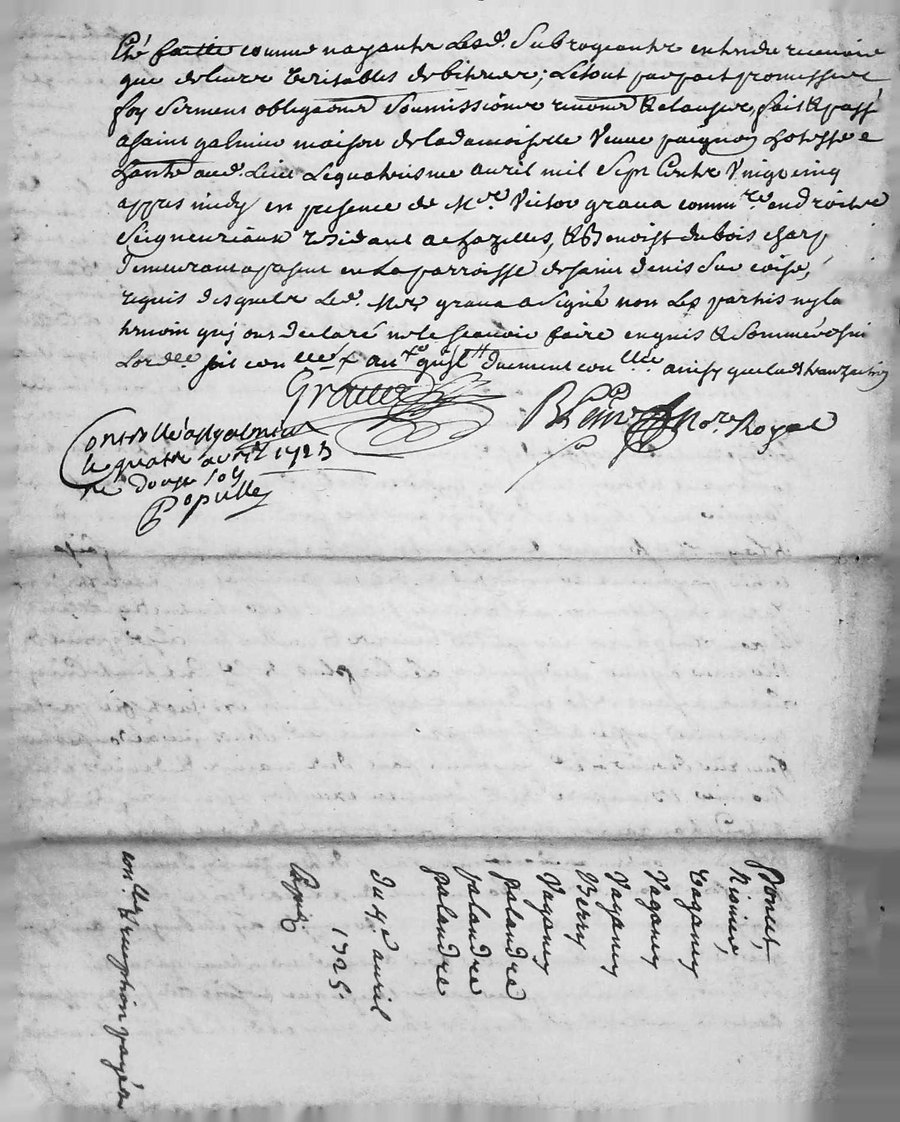 Eté faitte comme nayants Lesd. Subrogeants entendu recevoir
que de leurs veritables debiteurs; Letout par fait promesses
foy Serment obligaons Soumissions renons & clauses, fait & passé
a saint galmier maison de la damoiselle Veuve hotesse
aud. Lieu Le quatriesme avril mil Sept Cents Vingt cinq
appres midy en presence de Mre. Victor grava commre. en droits
Seigneuriaux residant a chazelles, & Benoist dubois charp
demeurant a present en La parroisse de saint denis Sur coise,
requis desquels Led. Mre grava a Signé non Les parties ny la
temoin quj ont declaré ne le scavoir faire enquis & Sommés
soit duement ainsy que
Grava
R no.re Royal
Controllé a St galmier
le quatre avril 1725
Re douze sols
Populle
Ponset,
Vaganey
Vaganey
Vaganey
Berry
Vaganey
palandre
palandre
palandre
Du 4e. avril
1725.
conlle & reception payés